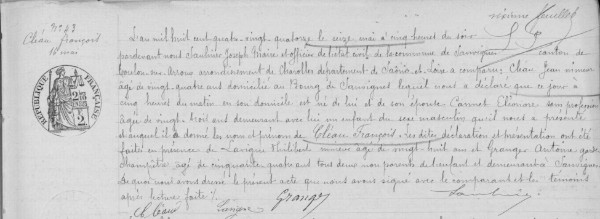 N° 43
Cléau François
16 mai
RÉPUBLIQUE FRANÇAISE
L'an mil huit cent quatre-vingt-quatorze le seize mai à cinq heures du soir
pardevant nous Joseph Maire et officier de l'état civil de la commune de Sanvignes canton de
Toulon-sur-Arroux arrondissement de Charolles département de Saône et Loire a comparu Cléau Jean mineur
âgé de vingt-quatre ans domicilié au Bourg de Sanvignes lequel nous a déclaré que ce jour à
cinq heures du matin en son domicile est né de lui et de son épouse Carnet Eléonore sans profession
âgée de vingt trois ans demeurant avec lui un enfant du sexe masculin qu'il nous a présenté
et auquel il a donné les nom et prénom de Cléau François. Les dites déclaration et présentation ont été
faites en présence de Lavigne mineur âgé de vingt-huit ans et Granger Antoine garde
champêtre âgé de cinquante quatre ans tous deux non parents de l'enfant et demeurant à Sanvignes
De quoi nous avons dressé le présent acte que nous avons signé avec le comparant et les témoins
après lecture faite
Cléau Lavigne Granger